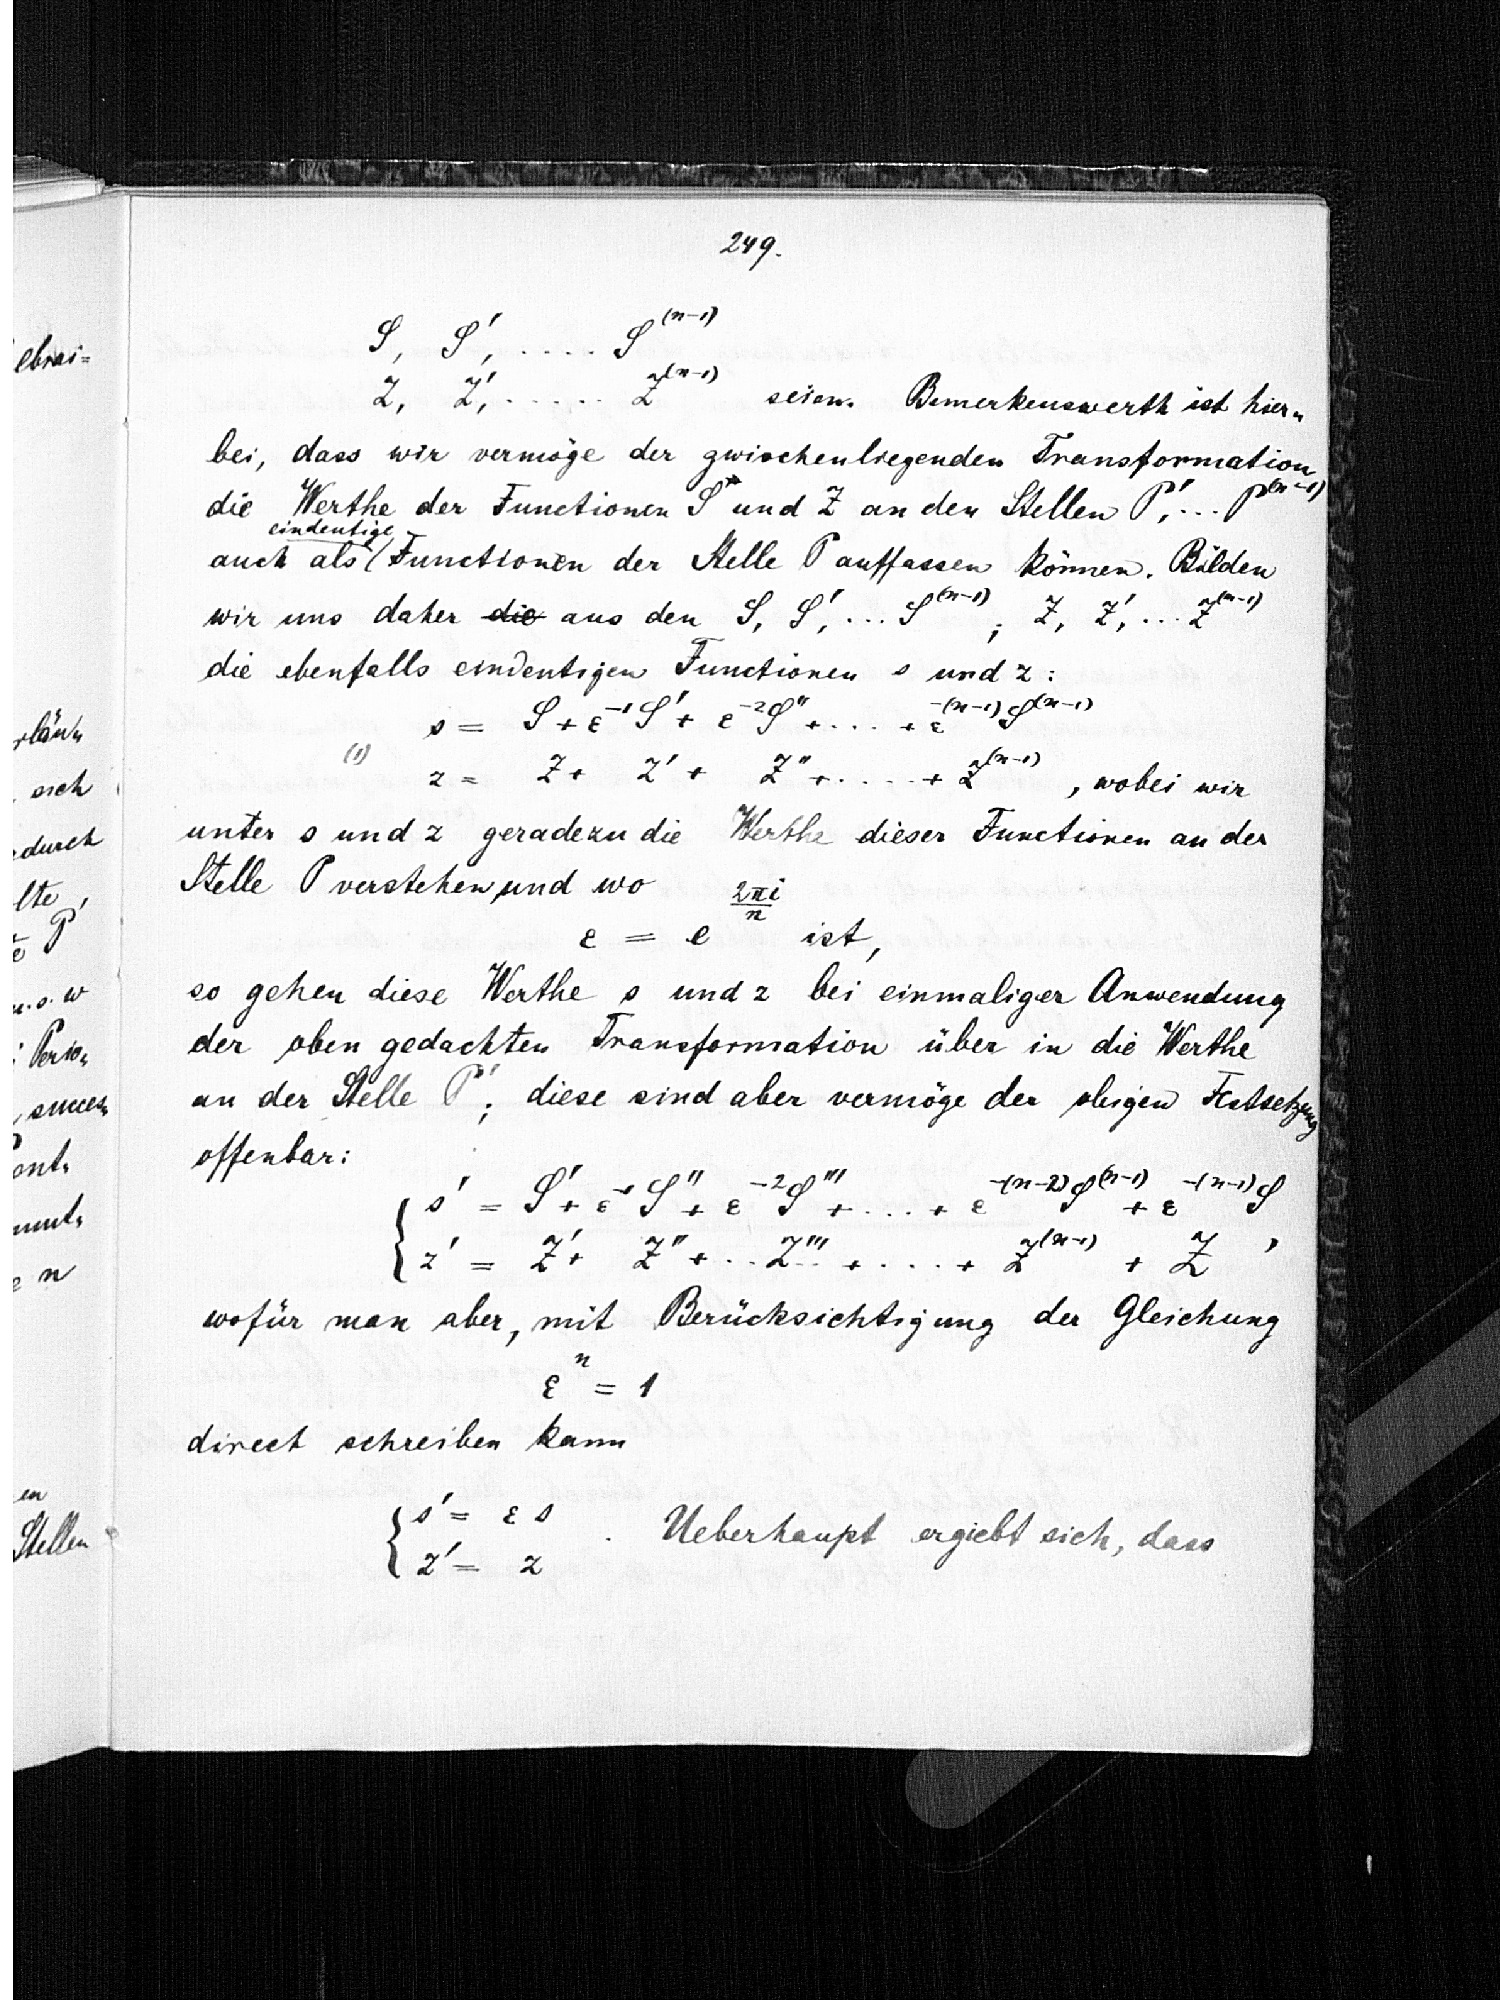 249.
S, S', .... S^(n-1)
Z, Z', ..... Z^(n-1) seien. Bemerkenswerth ist hier-
bei, dass wir vermöge der zwischenliegenden Transformation
die Werthe der Functionen S und Z an den Stellen P', ... P^(n-1)
eindeutige
auch als Functionen der Stelle P auffassen können. Bilden
wir uns daher die aus den S, S', ... S^(n-1); Z, Z', ... Z^(n-1)
die ebenfalls eindeutigen Functionen s und z:
s = S + ε^-1 S' + ε^-2 S'' + .... + ε^-(n-1) S^(n-1)
(1)
z = Z + Z' + Z'' + .... + Z^(n-1) , wobei wir
unter s und z geradezu die Werthe dieser Functionen an der
Stelle P verstehen, und wo
ε = e^(2πi/n) ist,
so gehen diese Werthe s und z bei einmaliger Anwendung
der oben gedachten Transformation über in die Werthe
an der Stelle P'; diese sind aber vermöge der obigen Festsetzung
offenbar:
s' = S' + ε^-1 S'' + ε^-2 S''' + .... + ε^-(n-2) S^(n-1) + ε^-(n-1) S
z' = Z' + Z'' + .. Z''' .. + .... + Z^(n-1) + Z ,
wofür man aber, mit Berücksichtigung der Gleichung
ε^n = 1
direct schreiben kann
s' = ε s
z' = z . Ueberhaupt ergiebt sich, dass
ebrai=
sich
durch
lte,
P'
u.s.w
Perio-
succes-
e n
en
Stellen